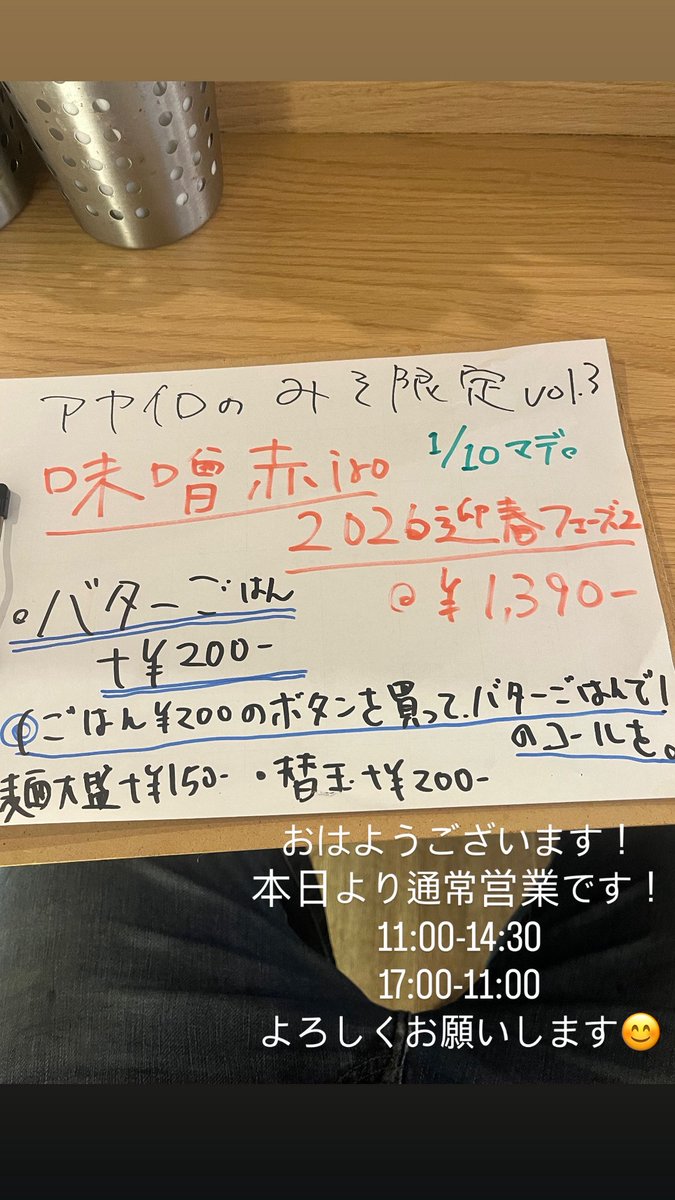 アヤイロの みそ限定 vol.3
味噌赤iro
1/10マデ。
2026迎春フェーズ2
¥1,390-
・バターごはん
+¥200-
(ごはん¥200のボタンを買って、バターごはんで!
のコールを。
麺大盛+¥150- ・替玉+¥200-
おはようございます!
本日より通常営業です!
11:00-14:30
17:00-11:00
よろしくお願いします😊